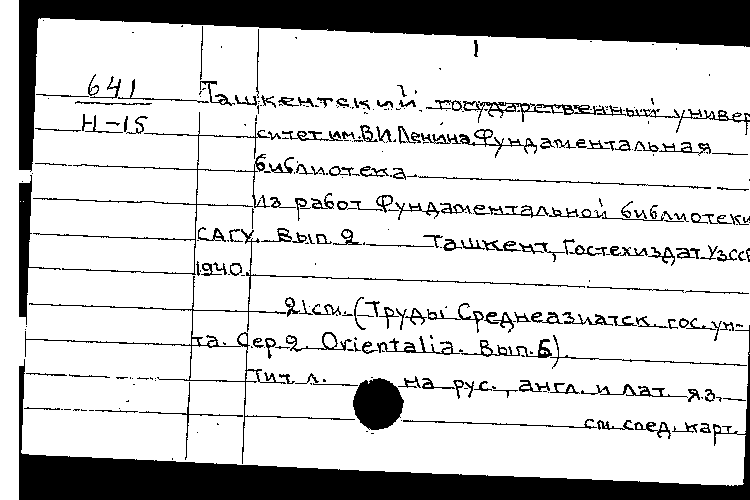 1
641
Н-15
Ташкентский государственный универ
ситет им. В.И. Ленина. Фундаментальная
библиотека.
Из работ Фундаментальной библиотеки
САГУ. Вып. 2 Ташкент, Гостехиздат УзССР
1940.
21 см. (Труды Среднеазиатск. гос. ун-
та. Сер. 2. Orientalia. Вып. 5).
Тит. л. на рус., англ. и лат. яз.
см. след. карт.